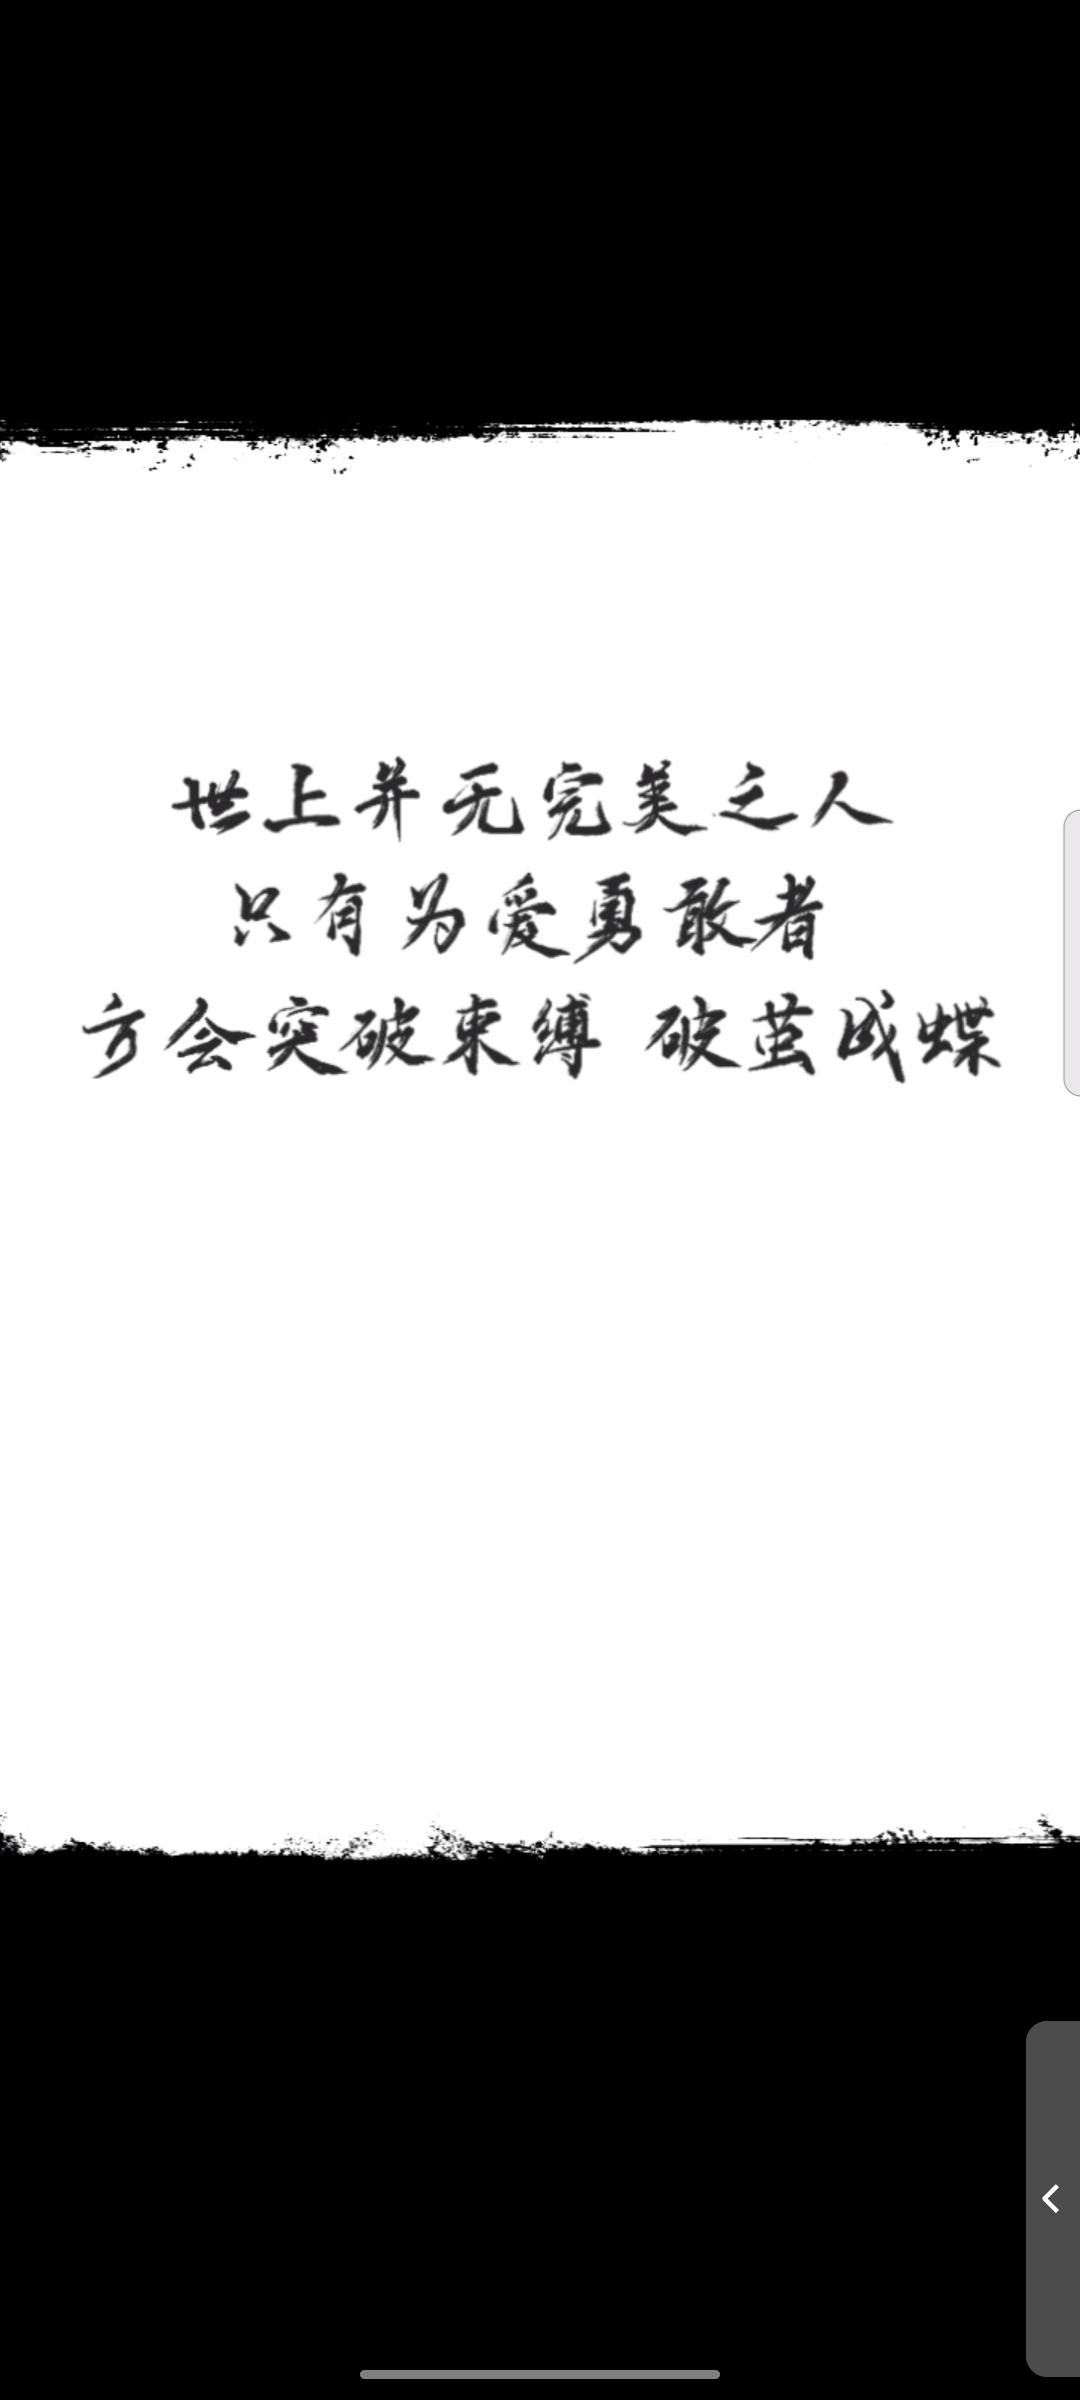 世上并无完美之人
只有为爱勇敢者
方会突破束缚 破茧成蝶